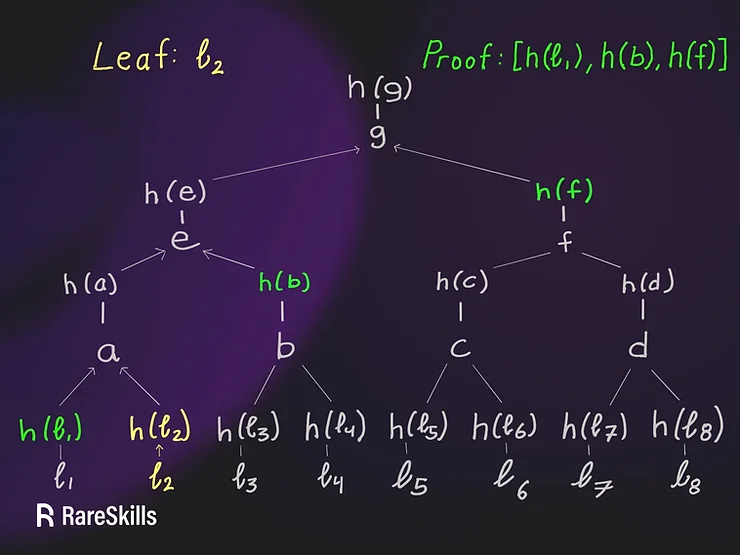 Leaf: ℓ₂
Proof: [h(ℓ₁), h(b), h(f)]
h(g)
g
h(e) h(f)
e f
h(a) h(b) h(c) h(d)
a b c d
h(ℓ₁) h(ℓ₂) h(ℓ₃) h(ℓ₄) h(ℓ₅) h(ℓ₆) h(ℓ₇) h(ℓ₈)
ℓ₁ ℓ₂ ℓ₃ ℓ₄ ℓ₅ ℓ₆ ℓ₇ ℓ₈
RareSkills